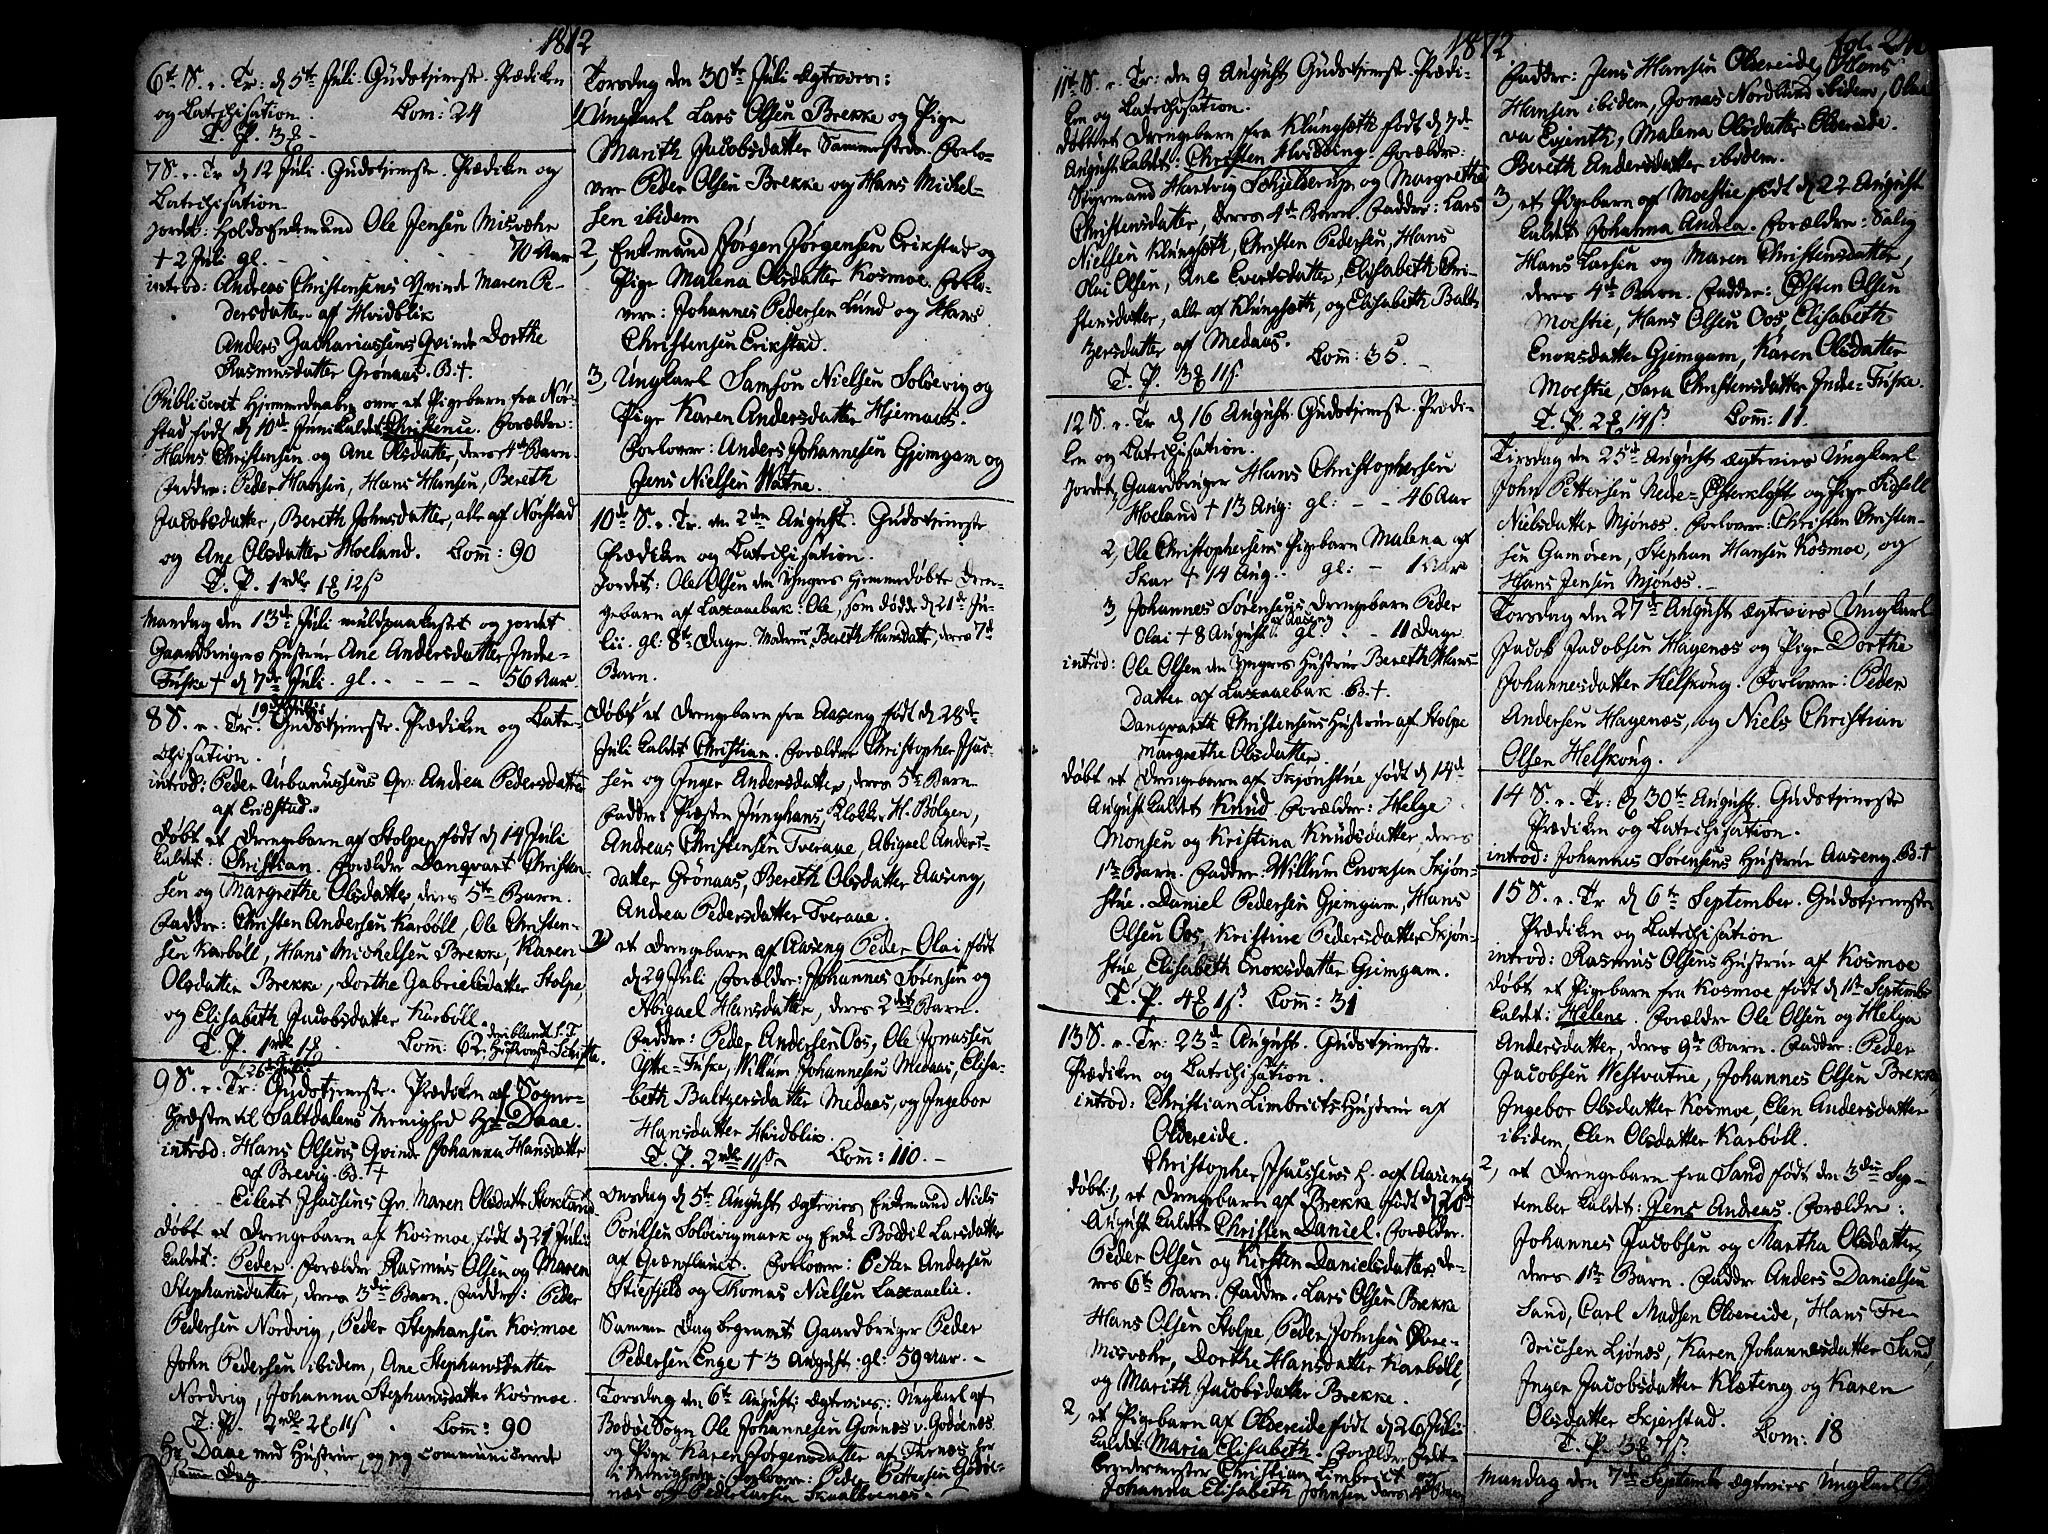 1812
6te S. e. Tr: d 5te Juli. Gudstjeneste. Prædiken
og Catechisation. Com: 24
T. P. 3
7 S. e. Tr d 12 Juli. Gudstjeneste. Prædiken og
Catechisation
Jordet: Holds Enkemand Ole Jensen Misvæhr
+ 2 Juli gl. 70 Aar
introd: Andreas Christensens Qvinde Maren Pe-
dersdatter af Hvidblik
Anders Zachariassens Qvinde Dorthe
Rasmusdatter Grønaas. B.+.
Publiceret Hjemmedaaben over et Pigebarn fra Nor-
stad født d 10de Juni kaldet. Forældre:
Hans Christensen og Ane Olsdatter, deres 4de Barn.
Faddre: Peder Hansen, Hans Hansen, Bereth
Jacobsdatter, Bereth Johnsdatter, alle af Nordstad
og Ane Olsdatter Moeland. Com: 90
T. P. 1 rdlr 12
Mandag den 13de Juli muldpaakastet og jordet
Gaardbrugers Hustrue Ane Andersdatter Inde-
Fuske + d 7de Juli. gl. 56 Aar
8 S. e. Tr. 19de Juli: Gudstjeneste. Prædiken og Cate-
chisation.
introd: Peder Urbanussens Qv: Andrea Pedersdatter
af Erikstad.
Døbt et Drengebarn af Stolpe, født d 14 Juli
kaldet: Christian. Forældre Danqvart Christen-
sen og Margrethe Olsdatter, deres 5te Barn.
Faddre: Christen Andersen Karbøll, Ole Christen-
sen Karbøll, Hans Michelsen Brekke, Karen
Olsdatter Brekke, Dorthe Gabrielsdatter Stolpe,
og Elisabeth Jacobsdatter Karbøll.
T. P. 1 rdlr Com: 62.
9 S. e. Tr: 26de Juli Gudstjeneste. Prædiken af Sogne-
Præsten til Saltdalens Menighed Hr Daae.
introd: Hans Olsens Qvinde Johanna Hansdatter
af Brevig. B.+
Eilert Isachsens Qv. Maren Olsdatter Stokland
Døbt et Drengebarn af Kosmoe, født d 21 Juli
kaldet: Peder. Forældre Rasmus Olsen og Maren
Stephansdatter, deres 3die Barn. Faddre: Peder
Pedersen Nordvig, Peder Stephansen Kosmoe
John Pedersen ibidem, Ane Stephansdatter
Nordvig, Johanna Stephansdatter Kosmoe.
T. P. 2 rdlr Com: 90
Hr Daae med Hustrue, og jeg communicerede
samme Dag
Torsdag den 30te Juli ægtevies:
1, Ungkarl Lars Olsen Brekke og Pige
Marith Jacobsdatter Sammestede. Forlo-
vere Peder Olsen Brekke og Hans Michel-
sen ibidem
2, Enkemand Jørgen Jørgensen Erikstad og
Pige Malena Olsdatter Kosmoe. Forlo-
vere: Johannes Pedersen Lund og Hans
Christensen Erikstad.
3, Ungkarl Samson Nielsen Soløevig og
Pige Karen Andersdatter Hjemaas.
Forlovere: Anders Johannesen Gjemgam og
Jens Nielsen Watne.
10de S. e. Tr. den 2den August. Gudstjeneste
Prædiken og Catechisation.
Jordet: Ole Olsen den Yngres hjemmedøbte Dren-
gebarn af Laxaaebak: Ole, som døde d 21de Ju-
lii. gl: 8te Dage. Moderen Bereth Hansdatter, deres 7de
Barn.
Døbt et Drengebarn fra Aaseng født d 28de
Juli kaldet Christian. Forældre Christopher Isac-
sen og Inger Andersdatter, deres 5te Barn
Faddre: Præsten Junghans, Klokker H. Bølgen,
Andreas Christensen Tveraae, Abigael Anders-
datter Grønaas, Bereth Olsdatter Aaseng,
Andrea Pedersdatter Tveraae.
2, et Drengebarn af Aaseng Peder Olai født
d 29 Juli. Forældre: Johannes Sørensen og
Abigael Hansdatter, deres 2det Barn.
Faddre: Peder Andersen Oos, Ole Jonassen
Yttre-Fuske, Willum Johannesen Medaas, Elisa-
beth Baltzersdatter Medaas, og Ingebor
Hansdatter Hvidblik.
T. P. 2 rdlr Com: 110.
Onsdag d 5te August ægtevies Enkemand Niels
Povelsen Soløevigmark og Enke Boddil Larsdatter
af Grønflaaet. Forlovere: Petter Andersen
Stiefjeld og Thomas Nielsen Laxaaelie.
Samme Dag begravet Gaardbruger Peder
Pedersen Enge + 3 August. gl: 59 Aar.
Torsdag den 6te August; ægtevies: Ungkarl af
Bodøe Sogn Ole Johannesen Godønæs
og Pige Karen Jørgensdatter af
Menigheden. Forlovere: Peder Pettersen Godø-
næs og Peder Larsen
1812 fol: 24
11te S. e. Tr: den 9 August Gudstjeneste. Prædi-
ken og Catechisation.
Døbt et Drengebarn fra Klungsæth født d 7de
August kaldet: Christen Hvidding. Forældre:
Styrmand Hartvig Schjelderup og Margrethe
Christensdatter, deres 4de Barn. Faddre: Lars
Nielsen Klungseth, Christen Pedersen, Hans
Olai Olsen, Ane Evertsdatter, Elisabeth Chri-
stensdatter, alle af Klungseth, og Elisabeth Balt-
zersdatter af Medaas. Com: 35.
T. P. 3 11
12 S. e. Tr. d 16 August Gudstjeneste. Prædi-
ken og Catechisation.
Jordet, Gaardbruger Hans Christophersen
Moeland + 13 Aug: gl: 46 Aar
2, Ole Christophersens Pigebarn Malena af
Skar + 14 Aug. gl: 1 Aar
3, Johannes Sørensens Drengebarn Peder
Olai + 8 August af Aaseng gl: 11 Dage
introd: Ole Olsen den Yngres Hustrue Bereth Hans-
datter af Laxaaebak. B.+.
Danqvarth Christensens Hustrue af Stolpe
Margrethe Olsdatter.
Døbt et Drengebarn af Skjønstue født d 14de
August kaldet Knud. Forældre: Helge
Monsen og Kristina Knudsdatter, deres
1te Barn. Faddre: Willum Enoksen Skjøn-
stue. Daniel Pedersen Gjemgam, Hans
Olsen Oos, Kristine Pedersdatter Skjøn-
stue Elisabeth Enoksdatter Gjemgam.
T. P. 4 1 Com: 31
13 S. e. Tr: 23de August. Gudstjeneste.
Prædiken og Catechisation.
introd: Christian Limbrichts Hustrue af
Olvereide.
Christopher Isacsens H. af Aaseng
Døbt: 1, et Drengebarn af Brekke født d 20de
August kaldet Christen Daniel. Forældre.
Peder Olsen og Kirsten Danielsdatter, de-
res 6te Barn. Faddre. Lars Olsen Brekke
Hans Olsen Stolpe, Peder Johnsen Øvre-
Misvæhr, Dorthe Hansdatter Karbøll,
og Marith Jacobsdatter Brekke.
2, et Pigebarn af Olvereide født d 26 Juli
kaldet: Maria Elisabeth. Forældre:
Christian Limbricht og
Johanna Elisabeth Johnsen deres Barn
1812
Faddre: Jens Hansen Olvereide, Hans
Hansen ibidem, Jonas Nordlund ibidem, Ola-
va Evjenth, Malena Olsdatter Olvereide.
Bereth Andersdatter ibidem.
3, et Pigebarn af Moestie født d 22 August
kaldet Johanna Andrea. Forældre: Salig
Hans Larsen og Maren Christensdatter,
deres 4de Barn. Faddre: Østen Olsen
Moestie, Hans Olsen Oos, Elisabeth
Enoksdatter Gjemgam, Karen Olsdatter
Moestie, Sara Christensdatter Inde-Fuske.
T. P. 2 14 Com: 11.
Tirsdag den 25de August ægtevies Ungkarl
John Pettersen Nede-Østerkløft og Pige Sidsell
Nielsdatter Mjønes. Forlovere: Christen Christen-
sen Gamøren, Stephan Hansen Kosmoe, og
Hans Jensen Mjønæs.
Torsdag den 27de August ægtevies Ungkarl
Jacob Jacobsen Hagenæs og Pige Dorthe
Johannesdatter Helskong. Forlovere: Peder
Andersen Hagenæs, og Niels Christian
Olsen Helskong.
14 S. e. Tr: d 30te August. Gudstjeneste
Prædiken og Catechisation.
introd: Johannes Sørensens Hustrue Aaseng. B.+
15 S. e. Tr d 6te September. Gudstjeneste
Prædiken og Catechisation
introd: Rasmus Olsens Hustrue af Kosmoe
Døbt et Pigebarn fra Kosmoe, født d 1te Septembr
kaldet: Helene. Forældre Ole Olsen og Helga
Andersdatter, deres 9de Barn. Faddre: Peder
Jacobsen Westvatne, Johannes Olsen Brekke,
Ingebor Olsdatter Kosmoe, Elen Andersdatter
ibidem, Elen Olsdatter Karbøll.
2, et Drengebarn fra Sand født den 3die Sep-
tember kaldet: Jens Andreas. Forældre:
Johannes Jacobsen og Martha Olsdatter,
deres 1te Barn. Faddre Anders Danielsen
Sand, Carl Madsen Olvereide, Hans Fre-
dricsen Ljønæs, Karen Johannesdatter Sand,
Inger Jacobsdatter Klæteng og Karen
Olsdatter Skjerstad. Com: 18
T. P. 3 7
Mandag den 7de September ægtevies Ungkarl